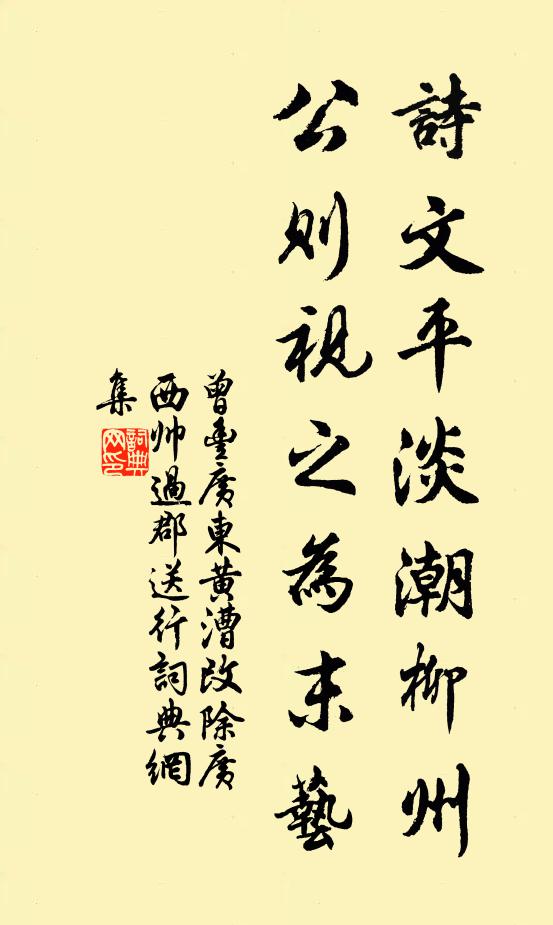 詩文平淡潮柳州
公則視之為末藝
曾豊廣東黃漕改除廣
西帅過郡送行詞典網
集
詞典網印